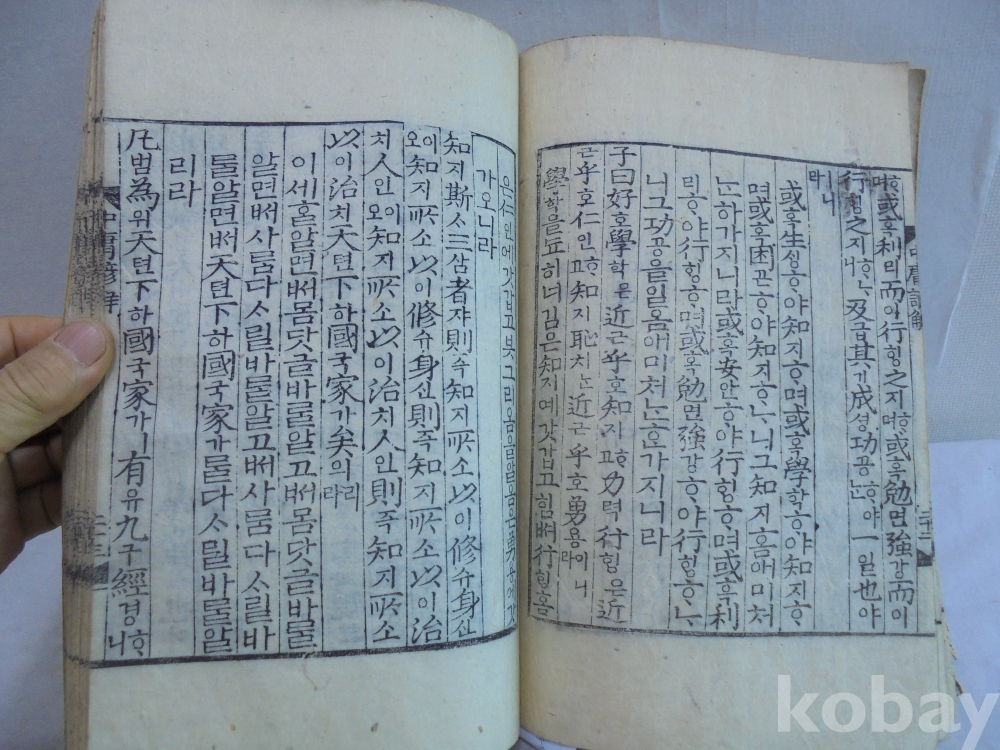 ᄒᆞ며或혹利리而이行ᄒᆡᆼ之지ᄒᆞ며或혹勉면強강而이
行ᄒᆡᆼ之지ᄒᆞᄂᆞ니及급其기成셩功공ᄒᆞ야ᄂᆞᆫ一일也야
니라
或혹生ᄉᆡᆼᄒᆞ야知지ᄒᆞ며或혹學ᄒᆞᆨᄒᆞ야知지ᄒᆞ
며或혹困곤ᄒᆞ야知지ᄒᆞᄂᆞ니그知지홈애미쳐
ᄂᆞᆫᄒᆞᆫ가지니라或혹安안ᄒᆞ야行ᄒᆡᆼᄒᆞ며或혹利
리ᄒᆞ야行ᄒᆡᆼᄒᆞ며或혹勉면強강ᄒᆞ야行ᄒᆡᆼᄒᆞᄂᆞ
니그功공을일옴애미쳐ᄂᆞᆫᄒᆞᆫ가지니라
子曰好호學ᄒᆞᆨ은近근乎호知지ᄒᆞ고力력行ᄒᆡᆼ은近
근乎호仁인ᄒᆞ고知지恥치ᄂᆞᆫ近근乎호勇용이니라
學ᄒᆞᆨ을됴히너김은知지예갓갑고힘ᄡᅥ行ᄒᆡᆼ홈
은仁인에갓갑고붓그러옴을알옴은勇용에갓
가오니라
知지斯ᄉᆞ三삼者쟈則즉知지所소以이修슈身신
이오知지所소以이修슈身신則즉知지所소以이治
치人인이오知지所소以이治치人인則즉知지所소
以이治치天텬下하國국家가矣의리라
이세흘알면ᄡᅥ몸닷글바ᄅᆞᆯ알고ᄡᅥ몸닷글바ᄅᆞᆯ
알면ᄡᅥ사ᄅᆞᆷ다ᄉᆞ릴바ᄅᆞᆯ알고ᄡᅥ사ᄅᆞᆷ다ᄉᆞ릴바
ᄅᆞᆯ알면ᄡᅥ天텬下하國국家가ᄅᆞᆯ다ᄉᆞ릴바ᄅᆞᆯ알
리라
凡범爲위天텬下하國국家가ㅣ有유九구經경ᄒᆞ니
中庸諺解
kobay